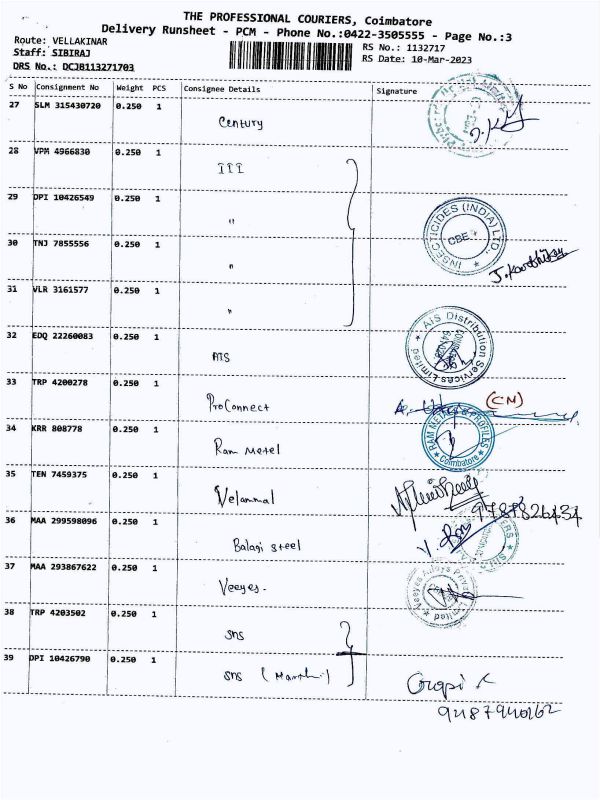 THE PROFESSIONAL COURIERS, Coimbatore
Delivery Runsheet - PCM - Phone No.:0422-3505555 - Page No.:3
Route: VELLAKINAR
RS No.: 1132717
Staff: SIBIRAJ
RS Date: 10-Mar-2023
DRS No.: DCJB113271703
S No Consignment No Weight PCS Consignee Details Signature
27 SLM 315430720 0.250 1 Century
28 VPM 4966830 0.250 1 III
29 DPI 10426549 0.250 1 "
INSECTICIDES (INDIA) LTD., CBE
30 TNJ 7855556 0.250 1 "
J. Karthikay
31 VLR 3161577 0.250 1 "
32 EDQ 22260083 0.250 1 AIS
AIS Distribution Services Limited
33 TRP 4200278 0.250 1 ProConnect (CM)
34 KRR 808778 0.250 1 Ram Metel
RAM METAL PROFILES Coimbatore
35 TEN 7459375 0.250 1 Velammal
9787826434
36 MAA 299598096 0.250 1 Balagi steel
37 MAA 293867622 0.250 1 Veeyes.
Veeyes Alloys Private Limited
38 TRP 4203502 0.250 1 SNS
39 DPI 10426790 0.250 1 SNS
Gopi K
9487940162